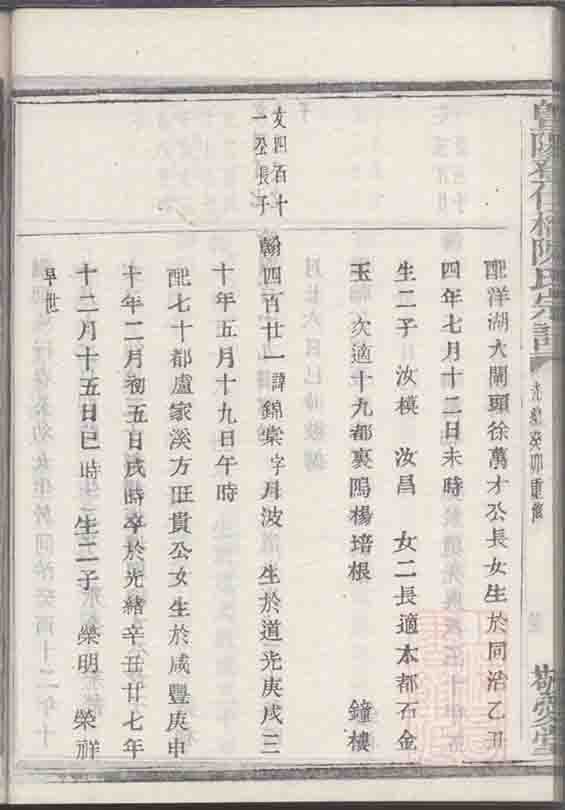 暨陽邑任橋陳氏宗譜
光緒癸卯重修
敬愛堂
配洋湖大閘頭徐萬才公長女生於同治乙丑
四年七月十二日未時
生二子 汝模 汝昌 女二長適本都石金
玉 次適十九都裏塢楊培根 鐘樓
文四百十
一公長子
翰四百廿一諱錦棠字月波 生於道光庚戌三
十年五月十九日午時
配七十都盧家溪方旺貴公女生於咸豐庚申
十年二月初五日戌時卒於光緒辛丑廿七年
十二月十五日巳時 生二子 榮明 榮祥
早世